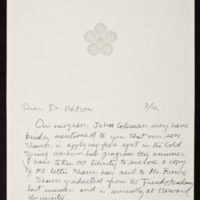 Dear Dr. Watson 7/12
Our neighbor John Coleman, may have
kindly mentioned to you, that our son
Shawn is applying for a spot in the Cold
Spring Harbor program this summer
I have taken the liberty to enclose a copy
of the letter Shawn has sent to Mr. Brown.
Shawn graduated from the Friends Academy
last summer and is currently at Harvard
University.